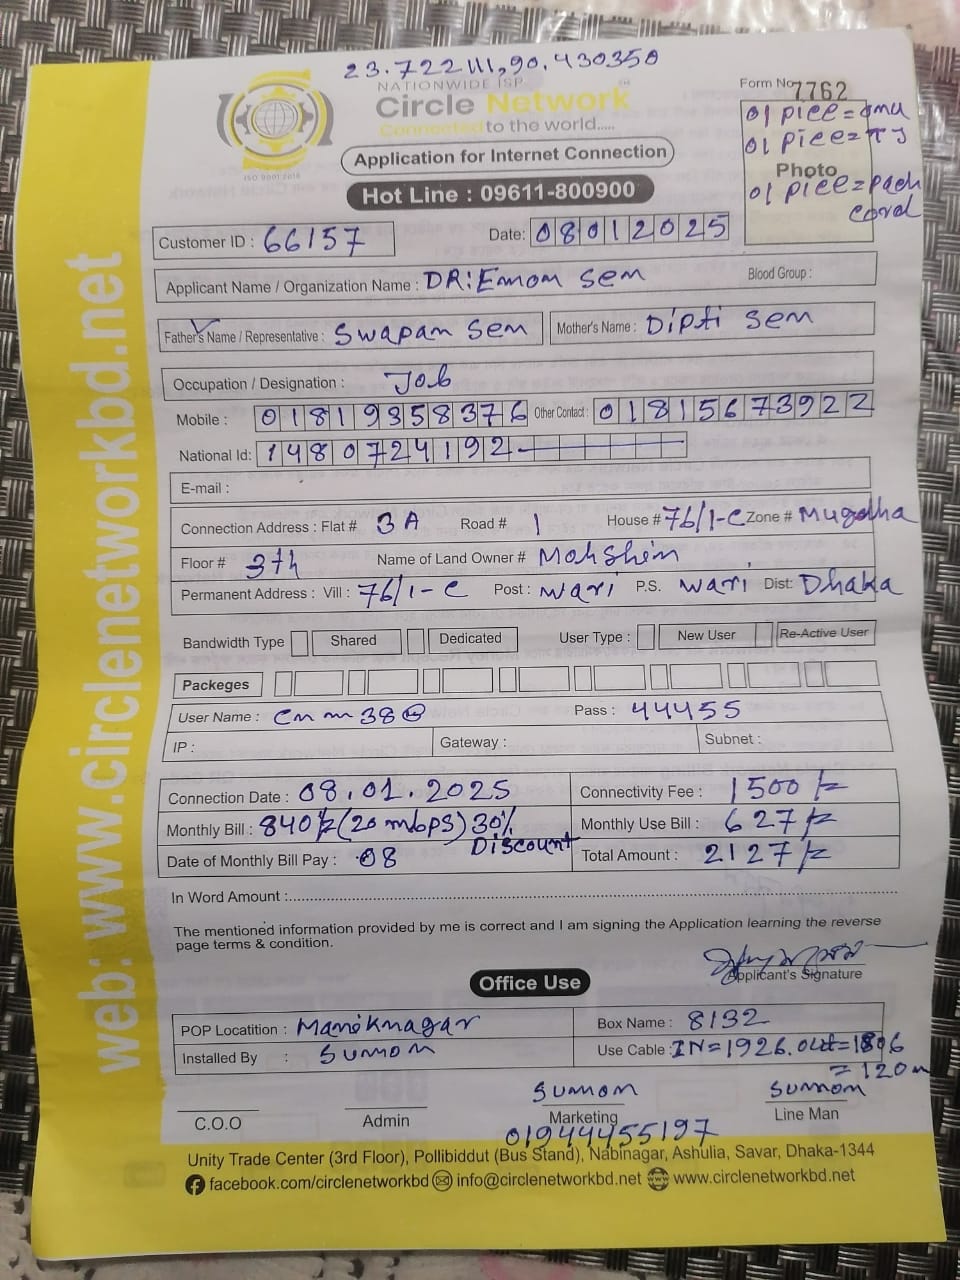 23.722111,90.430350
NATIONWIDE ISP
Circle Network
Connected to the world.....
ISO 9001:2015
Form No 7762
01 piece=onu
01 piece=TJ
Photo
01 piece=pach
cord
Application for Internet Connection
Hot Line : 09611-800900
Customer ID : 66157
Date: 08012025
Applicant Name / Organization Name : DR:Emon Sen
Blood Group :
Father's Name / Representative : Swapan Sen
Mother's Name : Dipti Sen
Occupation / Designation : Job
Mobile : 01819358376 Other Contact : 01815673922
National Id: 1480724192
E-mail :
Connection Address : Flat # 3A Road # 1 House # 76/1-C Zone # Mugdha
Floor # 3th Name of Land Owner # Mohshin
Permanent Address : Vill : 76/1-C Post : Wari P.S. Wari Dist: Dhaka
Bandwidth Type Shared Dedicated User Type : New User Re-Active User
Packeges
User Name : cnm38@ Pass : 44455
IP : Gateway : Subnet :
Connection Date : 08.01.2025 Connectivity Fee : 1500/=
Monthly Bill : 840/=(20 mbps) 30% Discount Monthly Use Bill : 627/=
Date of Monthly Bill Pay : 08 Total Amount : 2127/=
In Word Amount :
The mentioned information provided by me is correct and I am signing the Application learning the reverse
page terms & condition.
Applicant's Signature
Office Use
POP Locatition : Maniknagar Box Name : 8132
Installed By : Sumon Use Cable : IN=1926.out=1806
=120m
Sumon Sumon
C.O.O Admin Marketing Line Man
01944455197
Unity Trade Center (3rd Floor), Pollibiddut (Bus Stand), Nabinagar, Ashulia, Savar, Dhaka-1344
facebook.com/circlenetworkbd info@circlenetworkbd.net www.circlenetworkbd.net
web: www.circlenetworkbd.net